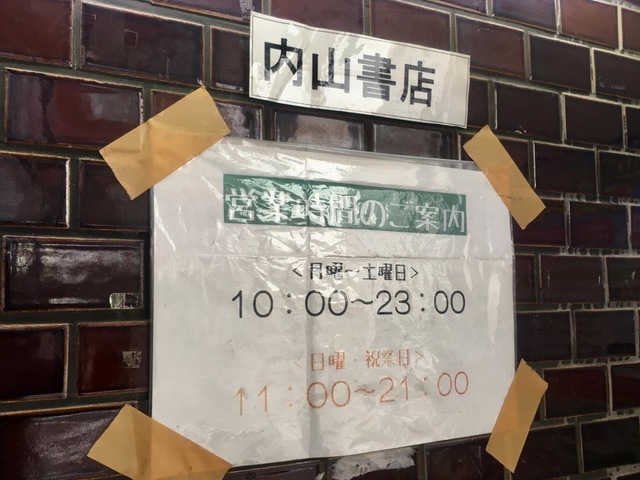 内山書店
営業時間のご案内
<月曜～土曜日>
10：00～23：00
<日曜・祝祭日>
11：00～21：00